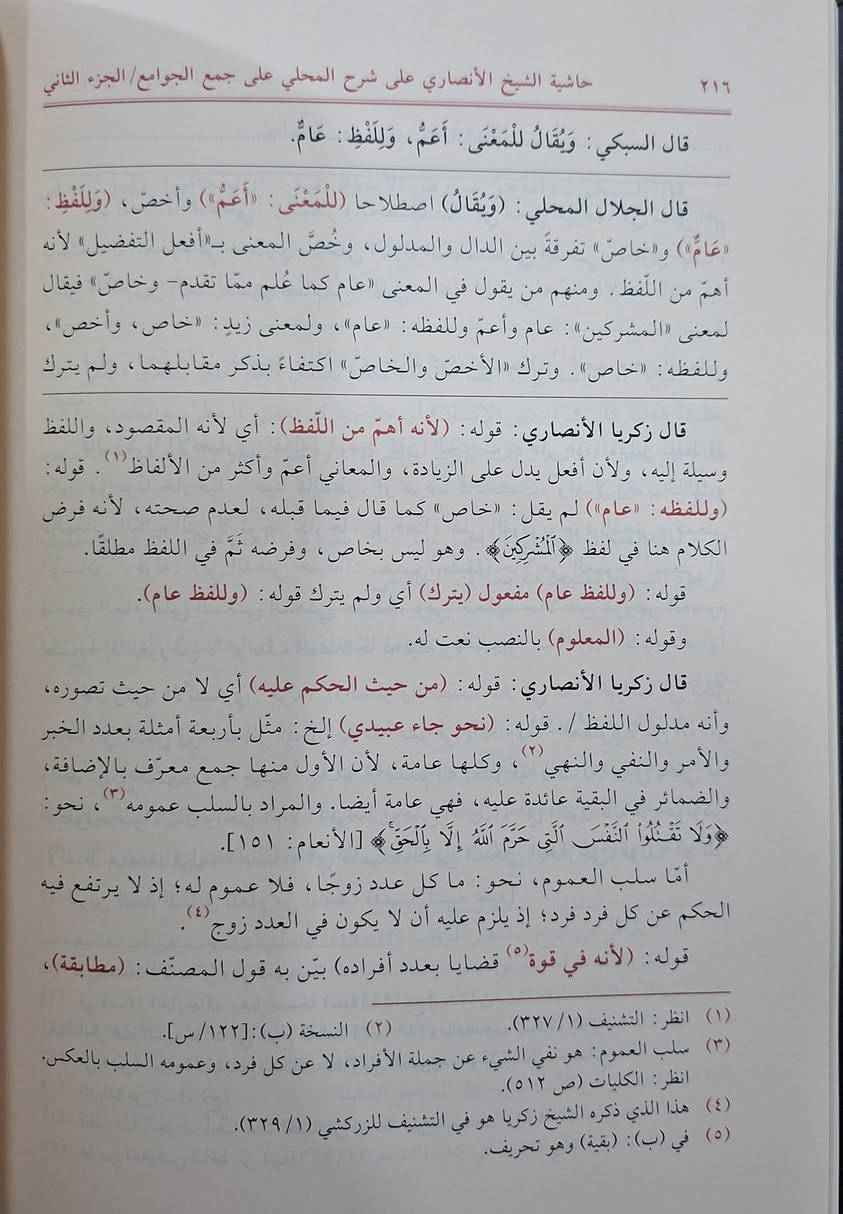 ٢١٦ حاشية الشيخ الأنصاري على شرح المحلي على جمع الجوامع/ الجزء الثاني
قال السبكي: وَيُقَالُ للْمَعْنَى: أَعَمُّ، وَلِلَفْظِ: عَامٌّ.
قال الجلال المحلي: (وَيُقَالُ) اصطلاحا (للْمَعْنَى: «أَعَمُّ») وأخصّ، (وَلِلَفْظِ:
«عَامٌّ») و«خاصّ» تفرقةً بين الدال والمدلول، وخُصَّ المعنى بـ«أفعل التفضيل» لأنه
أهمّ من اللّفظ. ومنهم من يقول في المعنى «عام كما عُلم ممّا تقدم- وخاصّ» فيقال
لمعنى «المشركين»: عام وأعمّ وللفظه: «عام»، ولمعنى زيدٍ: «خاص، وأخص»،
وللفظه: «خاص». وترك «الأخصّ والخاصّ» اكتفاءً بذكر مقابلهما، ولم يترك
قال زكريا الأنصاري: قوله: (لأنه أهمّ من اللّفظ): أي لأنه المقصود، واللفظ
وسيلة إليه، ولأن أفعل يدل على الزيادة، والمعاني أعمّ وأكثر من الألفاظ(١). قوله:
(وللفظه: «عام») لم يقل: «خاص» كما قال فيما قبله، لعدم صحته، لأنه فرض
الكلام هنا في لفظ ﴿ٱلْمُشْرِكِينَ﴾. وهو ليس بخاص، وفرضه ثَمَّ في اللفظ مطلقًا.
قوله: (وللفظ عام) مفعول (يترك) أي ولم يترك قوله: (وللفظ عام).
وقوله: (المعلوم) بالنصب نعت له.
قال زكريا الأنصاري: قوله: (من حيث الحكم عليه) أي لا من حيث تصوره،
وأنه مدلول اللفظ /. قوله: (نحو جاء عبيدي) إلخ: مثّل بأربعة أمثلة بعدد الخبر
والأمر والنفي والنهي(٢)، وكلها عامة، لأن الأول منها جمع معرّف بالإضافة،
والضمائر في البقية عائدة عليه، فهي عامة أيضا. والمراد بالسلب عمومه(٣)، نحو:
﴿وَلَا تَقْتُلُوا۟ ٱلنَّفْسَ ٱلَّتِى حَرَّمَ ٱللَّهُ إِلَّا بِٱلْحَقِّ ۚ﴾ [الأنعام: ١٥١].
أمّا سلب العموم، نحو: ما كل عدد زوجًا، فلا عموم له؛ إذ لا يرتفع فيه
الحكم عن كل فرد فرد؛ إذ يلزم عليه أن لا يكون في العدد زوج(٤).
قوله: (لأنه في قوة(٥) قضايا بعدد أفراده) بيّن به قول المصنّف: (مطابقة)،
(١) انظر: التشنيف (١/ ٣٢٧). (٢) النسخة (ب):[١٢٢/ س].
(٣) سلب العموم: هو نفي الشيء عن جملة الأفراد، لا عن كل فرد، وعمومه السلب بالعكس.
انظر: الكليات (ص ٥١٢).
(٤) هذا الذي ذكره الشيخ زكريا هو في التشنيف للزركشي (١/ ٣٢٩).
(٥) في (ب): (بقية) وهو تحريف.